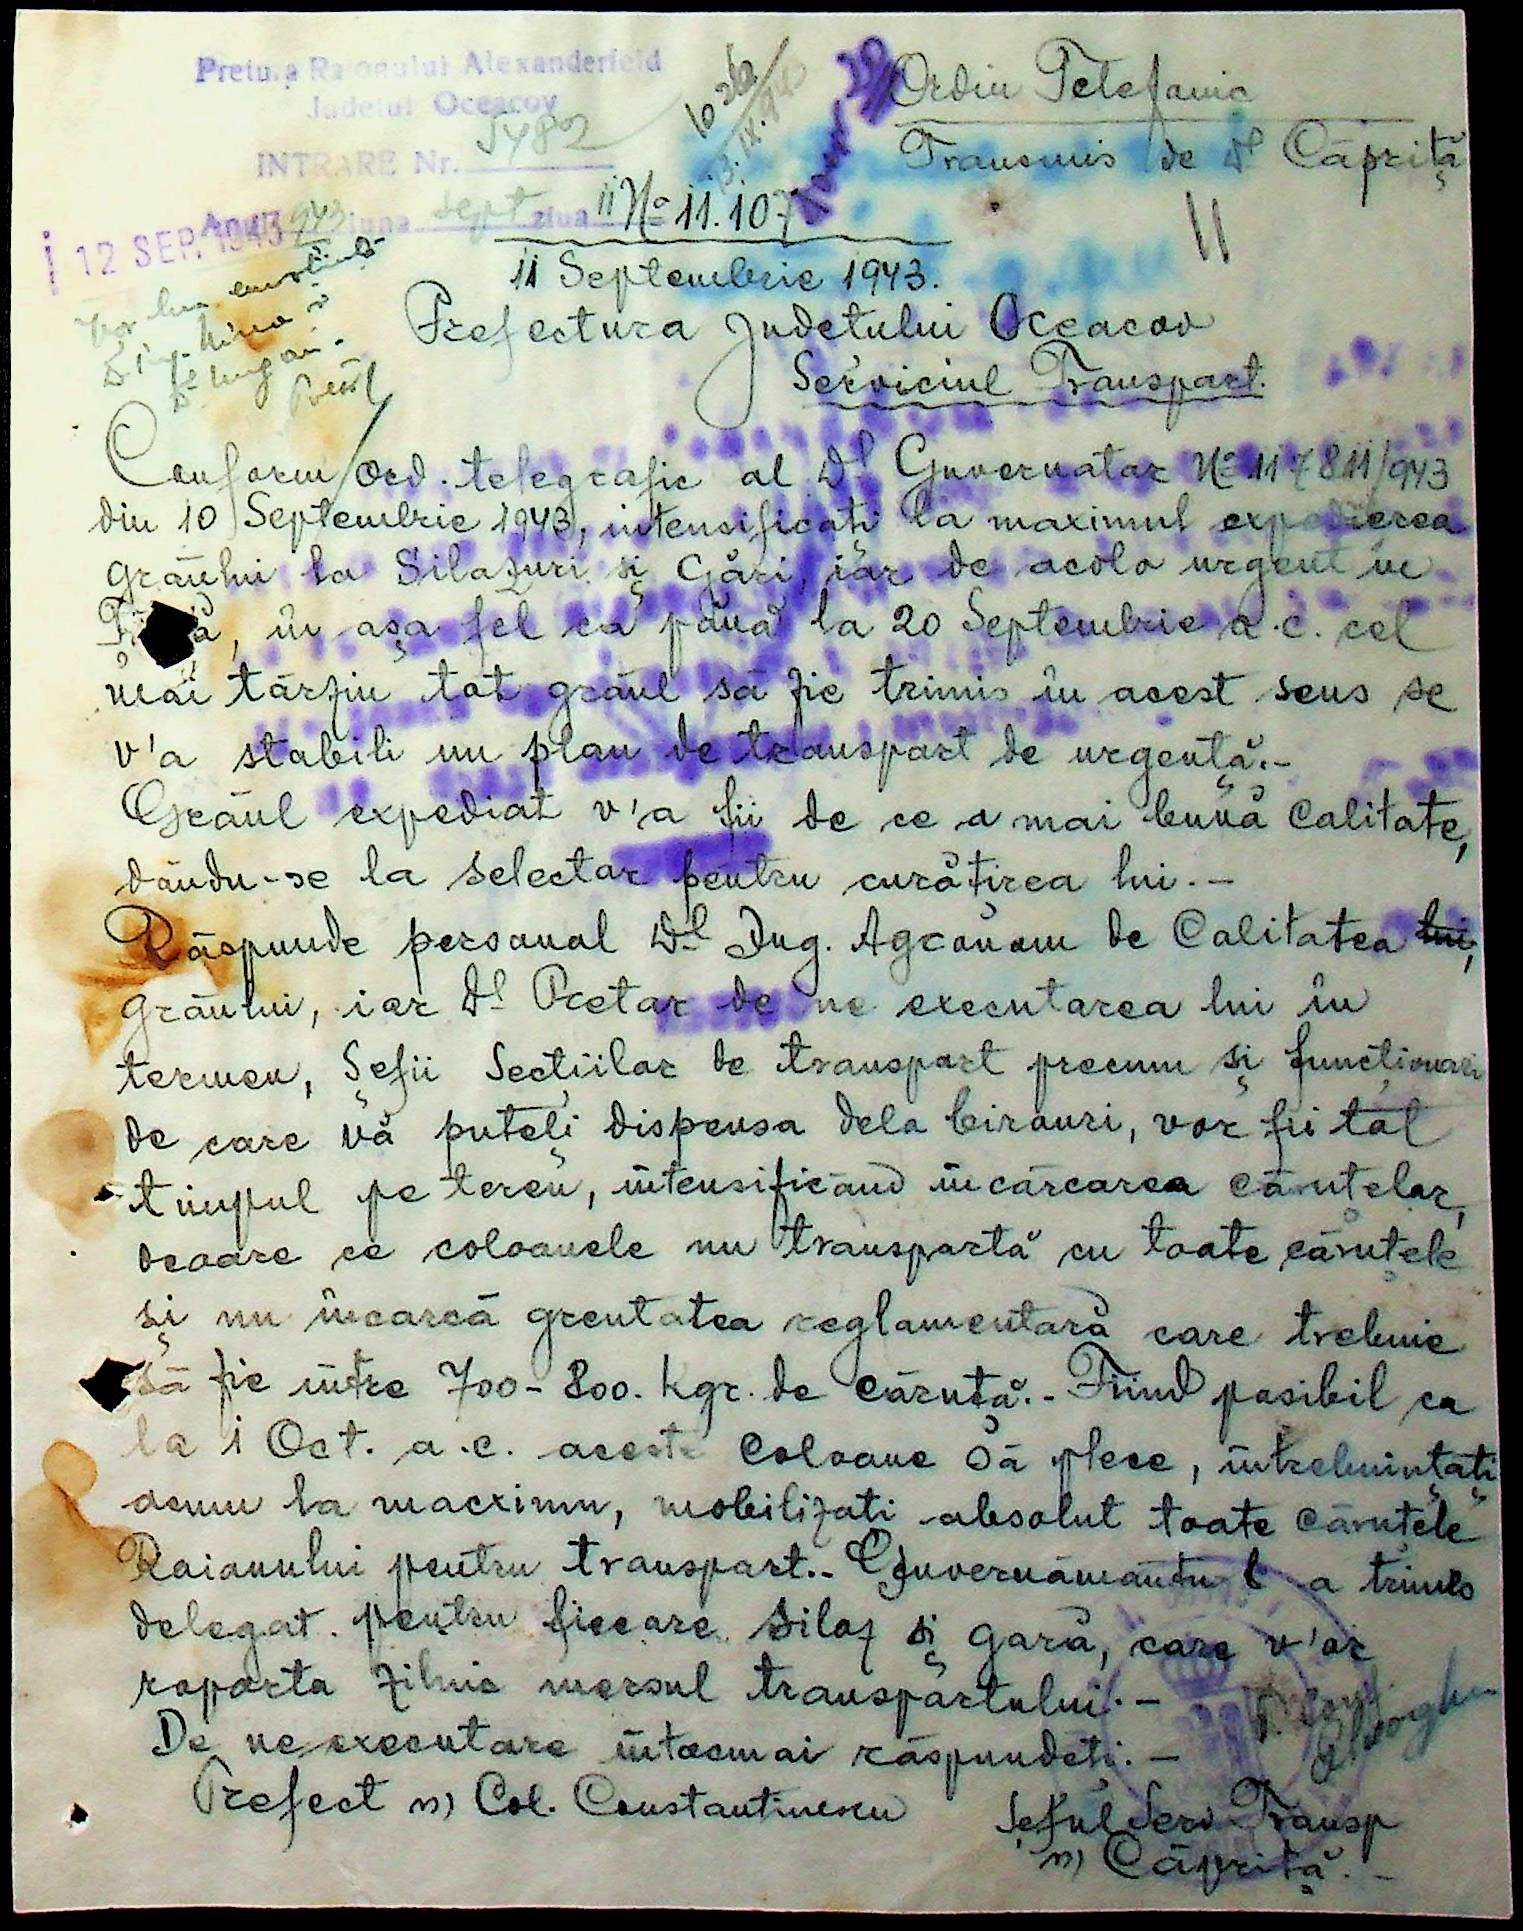 Pretura Raionului Alexanderfeld
Judetul Oceacov
INTRARE Nr. 5482
Anul 943 luna sept ziua 11
12 SEP. 1943
Ordin Telefonic
Transmis de Dl Căpriță
No 11.107
11 Septembrie 1943.
Prefectura Județului Oceacov
Serviciul Transport.
Conform ord. telegrafic al Dl Guvernator No 117811/943
din 10 Septembrie 1943, intensificați la maximul expedierea
grâului la Silozuri și Gări, iar de acolo urgent în
, în așa fel ca până la 20 Septembrie a.c. cel
mai târziu tot grâul să fie trimis în acest sens se
v'a stabili un plan de transport de urgență.-
Grâul expediat v'a fii de ce a mai bună Calitate,
dându-se la selector pentru curățirea lui.-
Răspunde personal Dl Ing. Agronom de Calitatea lui,
grâului, iar Dl Pretor de ne executarea lui în
termen, Șefii Secțiilor de transport precum și funcționari
de care vă puteți dispensa dela birouri, vor fii tot
timpul pe teren, intensificând încărcarea căruțelor,
deoare ce coloanele nu transportă cu toate căruțele
și nu încarcă greutatea reglamentară care trebuie
să fie între 700-800. kgr. de căruță.- Fiind posibil ca
la 1 Oct. a.c. aceste Coloane să plece, întrebuințați
acum la macximu, mobilizați absolut toate căruțele
Raionului pentru transport.- Guvernământul a trimis
delegat pentru fiecare siloz și gară, care v'or
raporta zilnic mersul transportului.-
De ne executare întocmai răspundeți.-
Prefect ss) Col. Constantinescu
Șeful Serv Transp
ss) Căpriță.-
Gheorghe